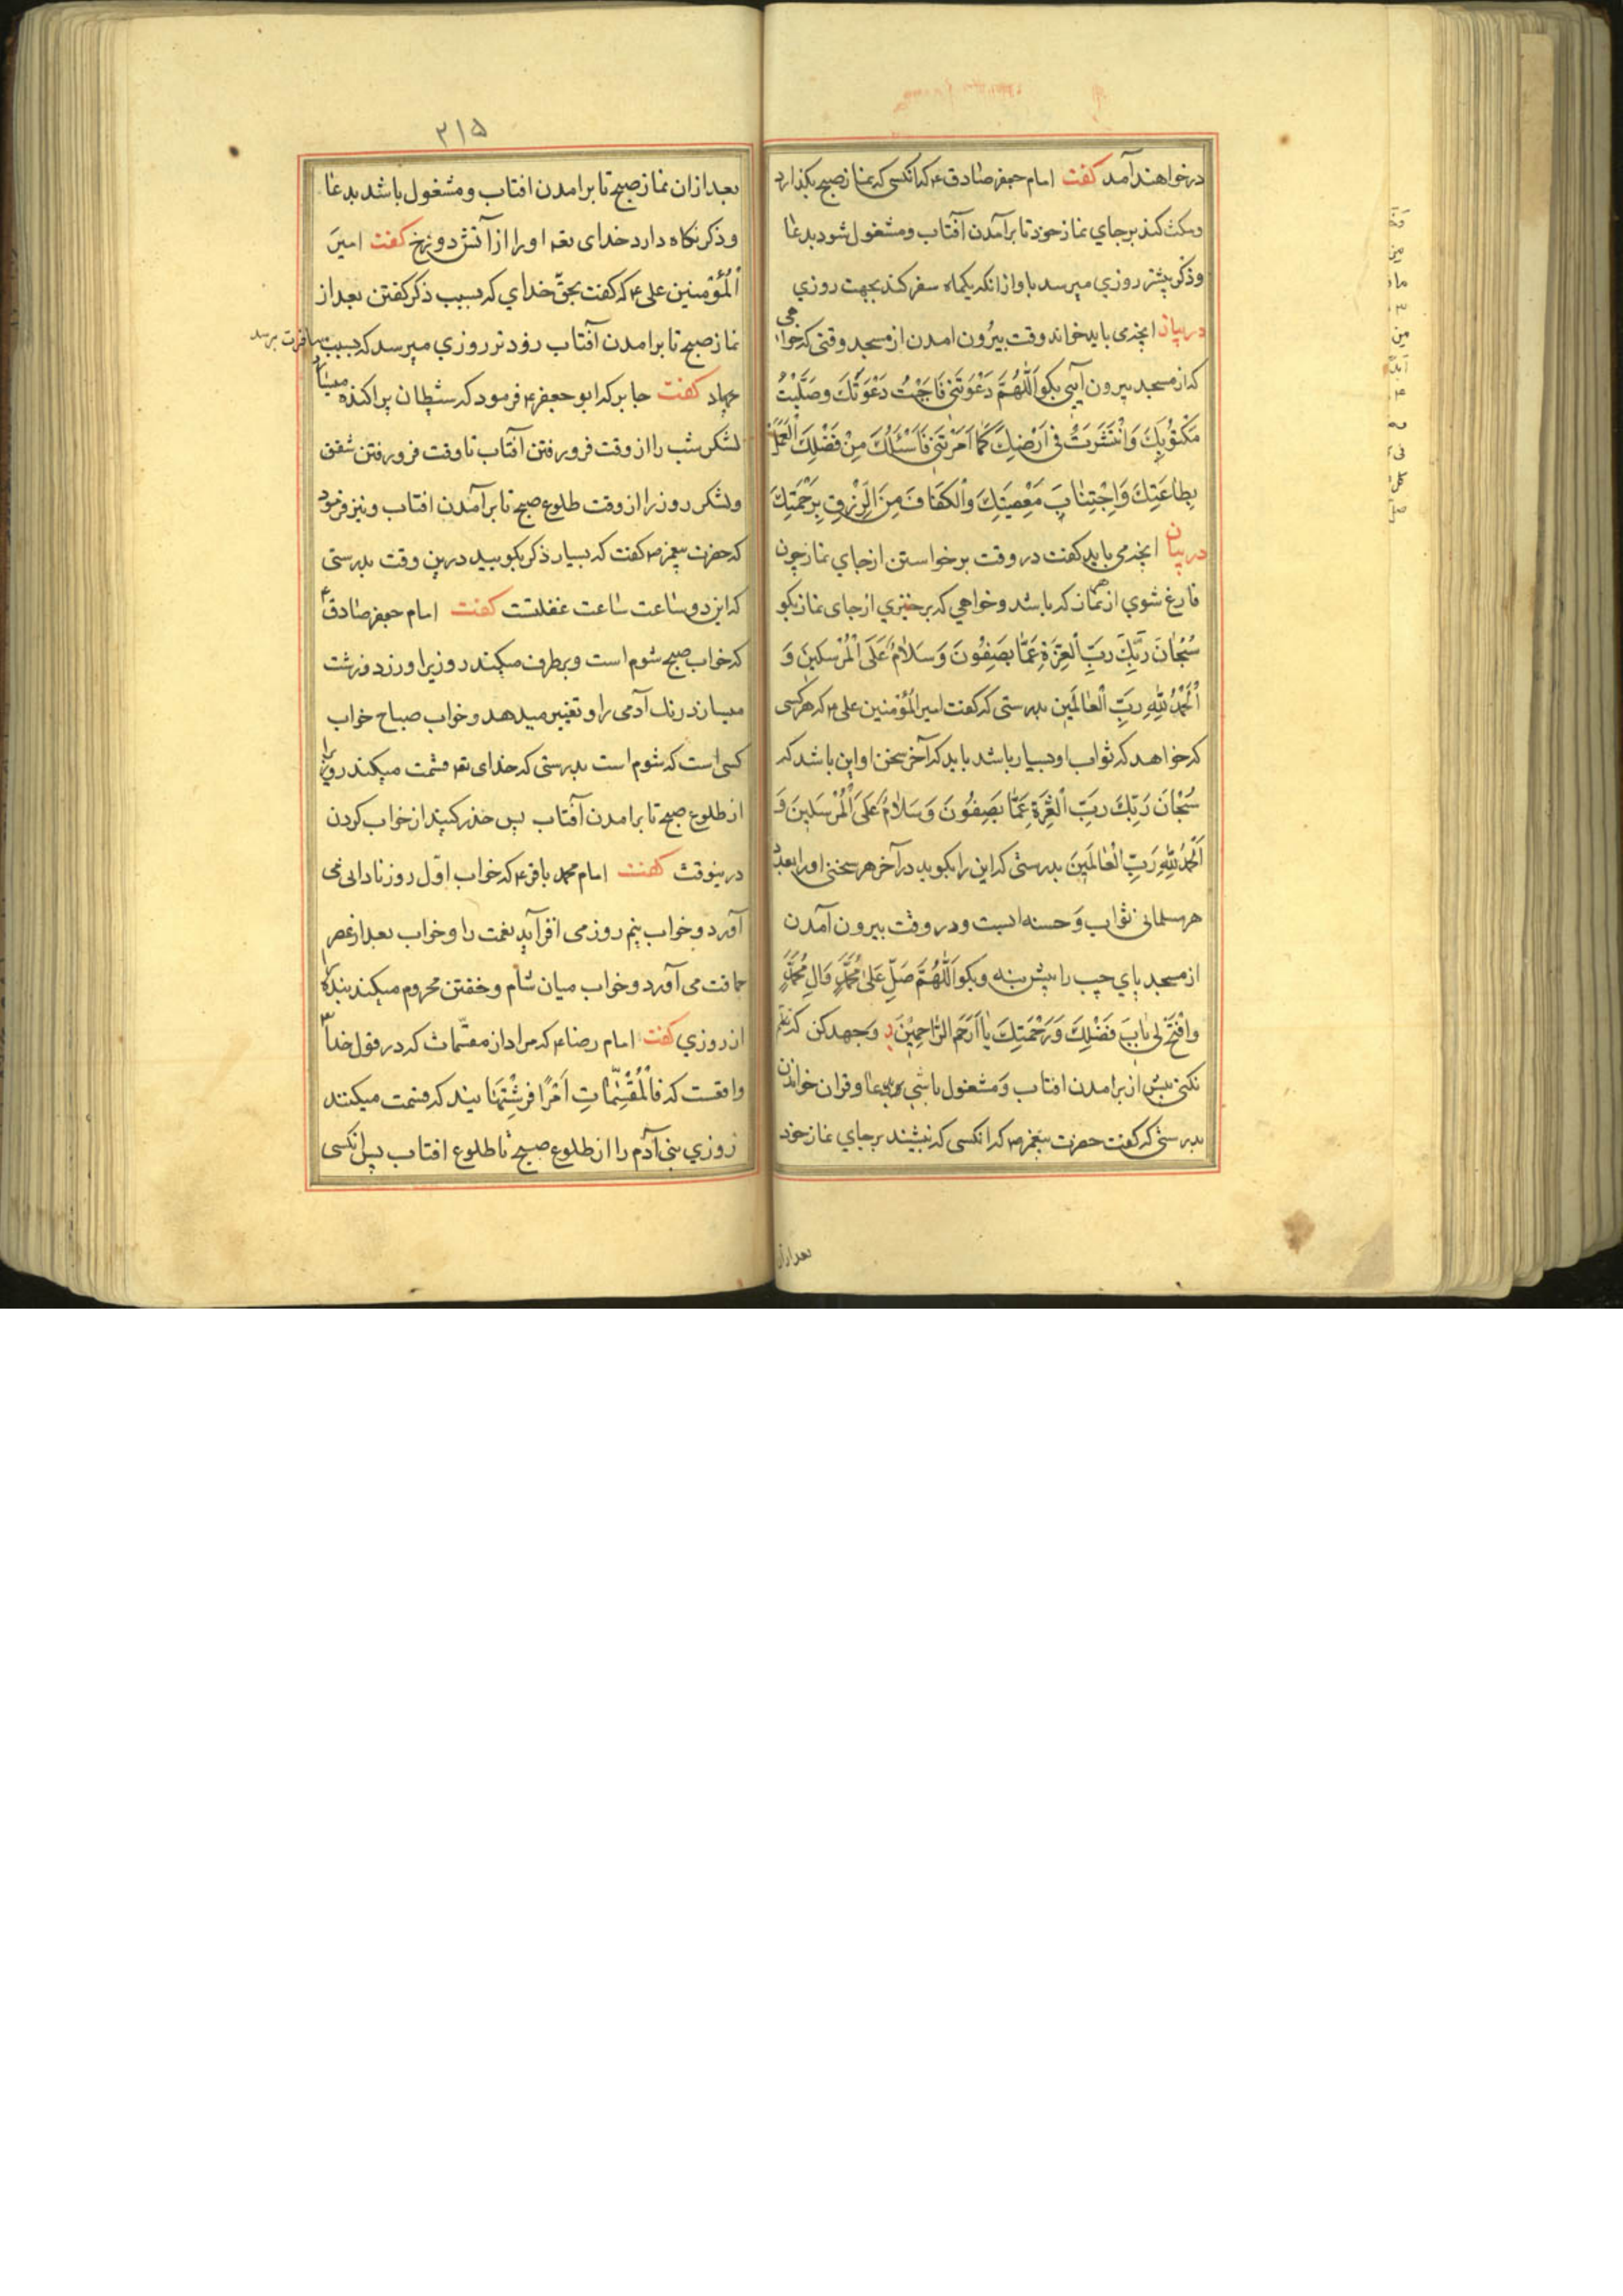 درخواهند آمد کفت امام جعفر صادق ع که انکسی که نماز صبح بکذارد
ومکث کند برجای نماز خود تا برآمدن آفتاب و مشغول شود بدعا
وذکر بیشتر روزي میرسد باو از انکه یکماه سفر کند بجهت روزي
در بیان انچه می باید خواند وقت بیرون امدن از مسجد وقتی که خواهی
که از مسجد بیرون آیی بکو اَللّهُمَّ دَعْوَتَنی فَاَجَبْتُ دَعْوَتَكَ وَصَلَّیْتُ
مَکْتوُبَكَ وَانْتَشَرْتُ فی اَرْضِكَ کَما اَمَرْتَنی فَاَسْئَلُكَ مِنْ فَضْلِكَ الْعَمَلَ
بِطاعَتِكَ وَاِجْتِنابَ مَعْصِیَتِكَ وَالْکَفافَ مِنَ الرِزْقِ بِرَحْمَتِكَ
در بیان انچه می باید کفت در وقت برخواستن از جاي نماز چون
فارغ شوي از نماز که باشد وخواهی که برخیزي از جای نماز بکو
سُبْحانَ رَبِّكَ رَبِّ الْعِزَةِ عَمّا یَصِفُونَ وَسَلامٌ عَلَی الْمُرْسَلینَ وَ
اَلْحَمْدُ لِلّهِ رَبِّ الْعالَمینِ بدرستی که کفت امیر المُؤْمنین علی ع که هر کسی
که خواهد که ثواب او بسیار باشد باید که آخر سخن او این باشد که
سُبْحانَ رَبِّكَ رَبِّ الْعِزَةِ عَمّا یَصِفُونَ وَسَلامٌ عَلَی الْمُرْسَلینَ وَ
اَلْحَمْدُ لِلّهِ رَبِّ الْعالَمینَ بدرستی که این را بکوید در آخر هر سخنی او را بعدد
هر مسلمانی ثواب وَحسنه ایست ودر وقت بیرون آمدن
از مسجد پاي چپ را پیش بنه وبکو اَللّهُمَّ صَلِّ عَلی مُحَمَّدٍ وَالِ مُحَمَّدٍ
وافْتَحْ لی بابَ فَضْلِكَ وَرَحْمَتِكَ یا اَرْحَمَ الرّاحِمینَ وَجهد کن که تکلم
نکنی پیش از برامدن افتاب وَمشغول باشی بدعا و قران خواندن
بدرستی که کفت حضرت پیغمبر ص که انکسی که بنشیند بر جاي نماز خود
بعد ازان
۲۱۵
بعد ازان نماز صبح تا برامدن افتاب ومشغول باشد بدعا
وذکر نکاه دارد خدای تعه اورا از آتش دوزخ کفت امیرَ
اَلْمُؤْمِنین علی ع که کفت بحقّ خداي که بسبب ذکر کفتن بعد از
نماز صبح تا برامدن آفتاب زودتر روزي میرسد که بسبب مسافرت برسد
جهاد کفت جابر که ابو جعفر ع فرمود که شیطان پراکنده میسازد
لشکر شب را از وقت فرو رفتن آفتاب تا وقت فرو رفتن شفق
ولشکر روز را از وقت طلوع صبح تا برآمدن افتاب ونیز فرمود
که حضرت پیغمبر ص کفت که بسیار ذکر بکویید درین وقت بدرستی
که این دو ساعت ساعت غفلتست کفت امام جعفر صادق ع
که خواب صبح شوم است وبرطرف میکند روزي را وزرد وزشت
میسازد رنك آدمی را وتغییر میدهد وخواب صباح خواب
کسی است که شوم است بدرستی که خدای تعه قسمت میکند روزي را
از طلوع صبح تا برامدن آفتاب پس حذر کنید از خواب کردن
درینوقت کفت امام محمد باقر ع که خواب اوّل روز نادانی می
آورد وخواب نیم روز می افزاید نعمت را وخواب بعد از عصر
حماقت می آورد وخواب میان شام وخفتن محروم میکند بنده را
از روزي کفت امام رضا ع که مراد از مقسّمات که در قول خدا
واقعست که فَالْمُقَسِّماتِ اَمْرًا فرشتهایند که قسمت میکنند
روزي بنی آدم را از طلوع صبح تا طلوع افتاب پس انکسی